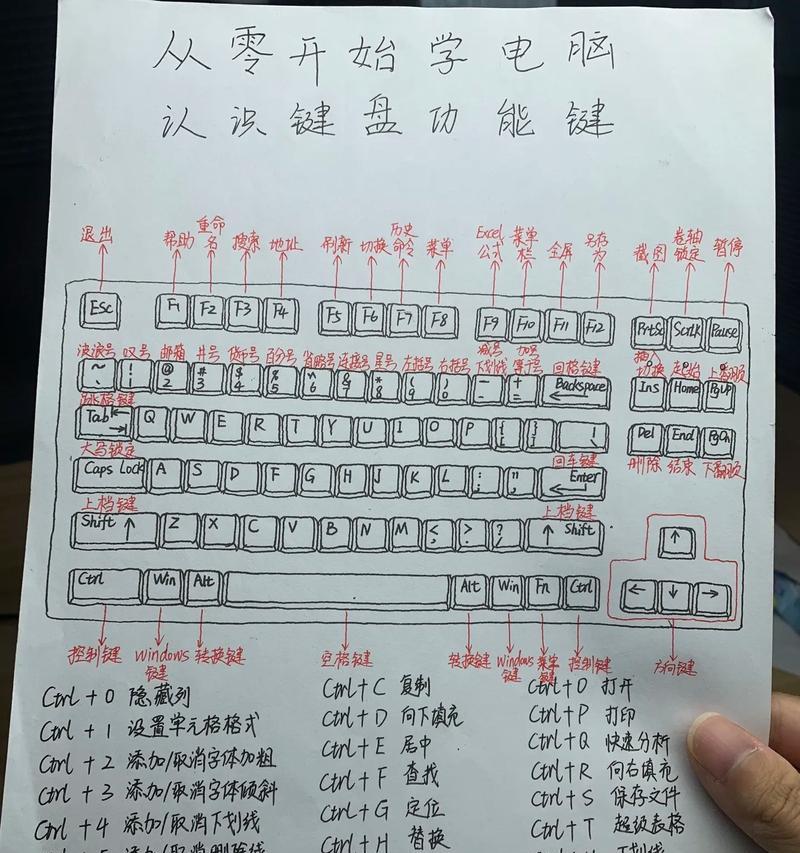 从零开始学电脑
认识键盘功能键
退出 帮助 重命名 搜索 地址 刷新 切换 历史命令 菜单 Excel公式 菜单栏 全屏 另存为 截图 卷轴锁定 暂停
Esc F1 F2 F3 F4 F5 F6 F7 F8 F9 F10 F11 F12 PrtSc ScrLK Pause
波浪号 叹号 邮箱 井号 货币号 百分号 省略号 连接号 星号 左括号 右括号 减号下划线 加号等于号 回格键键 插入切换 上翻页
~ ` ! 1 @ 2 # 3 $ 4 % 5 ^ 6 & 7 * 8 ( 9 ) 0 - - + = Backspace Ins Home PgUp
跳格键键
Tab Q W E R T Y U I O P { [ } ] \ Del End PgDn
大写锁定 回车键键 删除 结束 下翻页
Caps Lock A S D F G H J K L : ; " , Enter
上档键键 上档键键
Shift ↑ Z X C V B N M < , > . ? / ↑ Shift ↑
Ctrl Win Alt Alt Win Fn Ctrl ← ↓ →
控制键键 Windows键键 转换键键 空格键键 转换键键 Windows键键 控制键键 方向键键
Ctrl + 0 隐藏列 Ctrl + C 复制 Ctrl + O 打开
Ctrl + 1 设置单元格格式 Ctrl + D 向下填充 Ctrl + P 打印
Ctrl + 2 添加/取消字体加粗 Ctrl + E 居中 Ctrl + Q 快速分析
Ctrl + 3 添加/取消字体倾斜 Ctrl + F 查找 Ctrl + R 向右填充
Ctrl + 4 添加/取消下划线 Ctrl + G 定位 Ctrl + S 保存文件
Ctrl + H 替换 Ctrl + T 超级表格